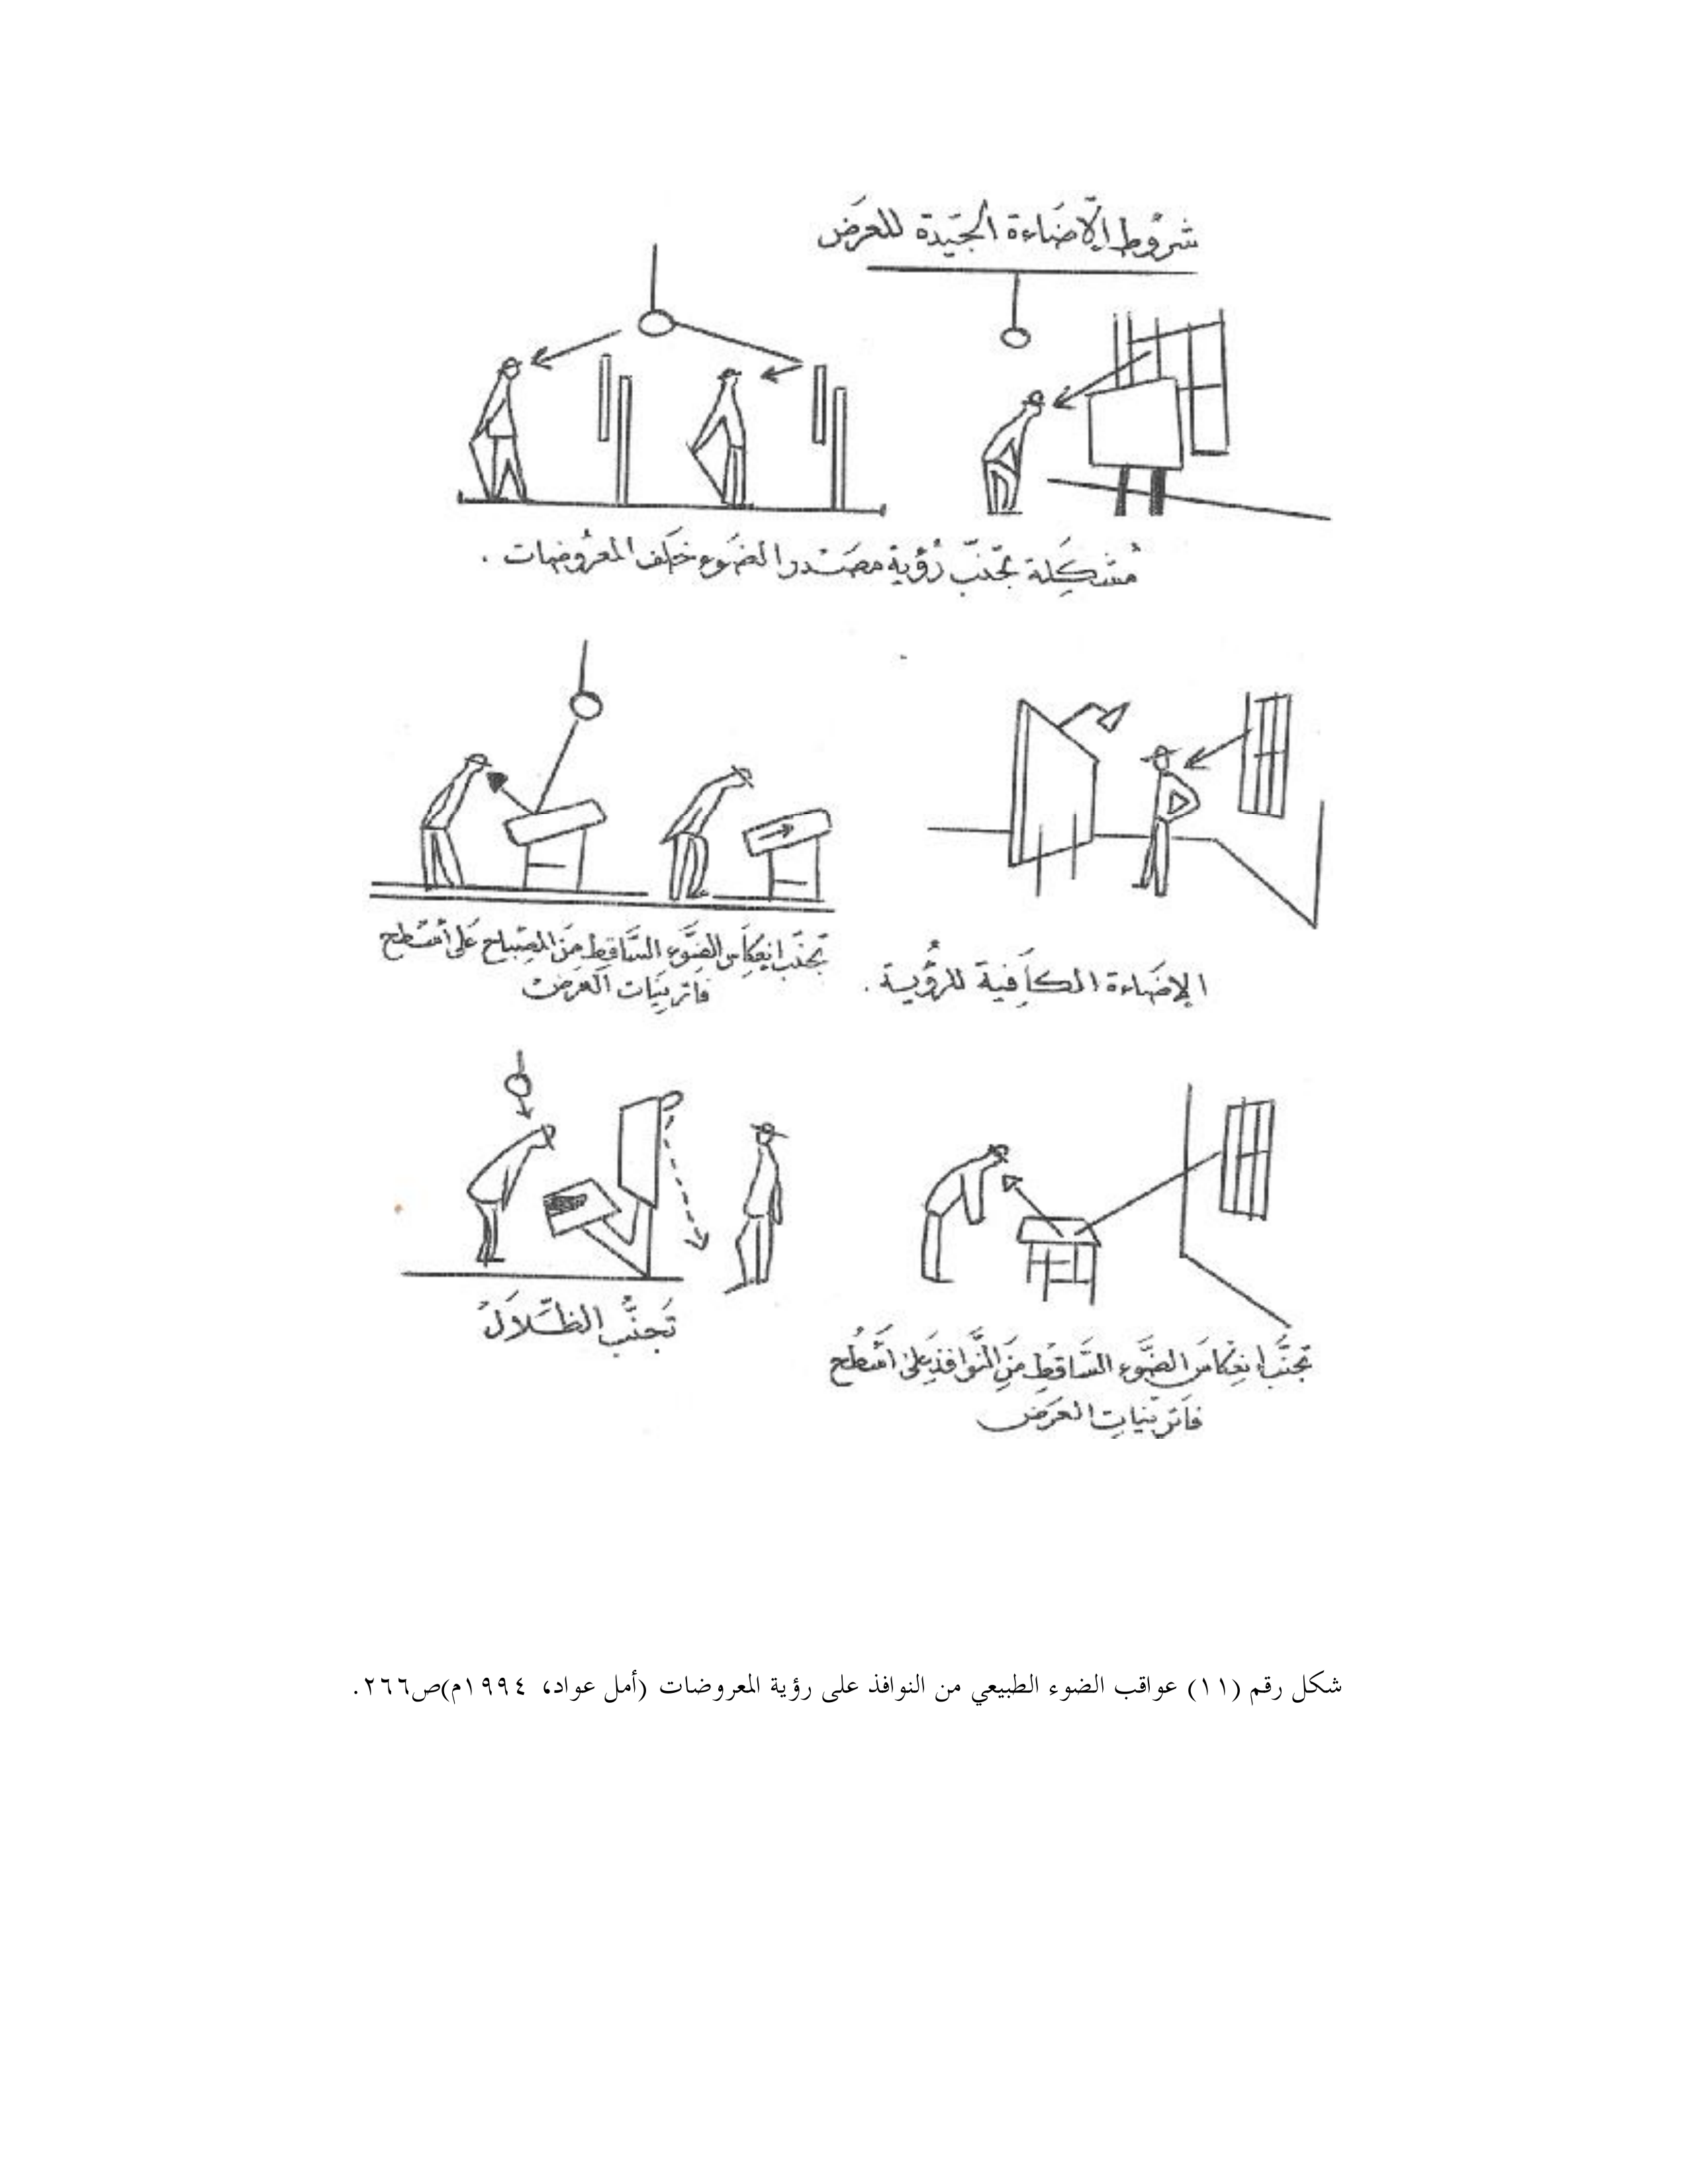 شروط الإضاءة الجيّدة للعرض
مشكلة تجنّب رؤية مصدر الضوء خلف المعروضات .
الإضاءة الكافية للرؤية .
تجنّب انعكاس الضّوء السّاقط من المصباح على أسطح
فاترينات العرض
تجنّب الظّلال
تجنّب انعكاس الضّوء السّاقط من النّوافذ على أسطح
فاترينات العرض
شكل رقم (١١) عواقب الضوء الطبيعي من النوافذ على رؤية المعروضات (أمل عواد، ١٩٩٤م)ص٢٦٦.